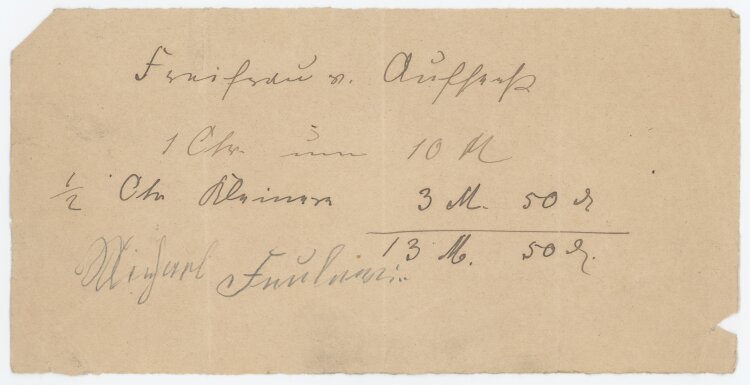 Freifrau v. Aufseeß
1 Ctr. um 10 M
1/2 Ctr Kleinere 3 M. 50 ₰
13 M. 50 ₰.
Michael